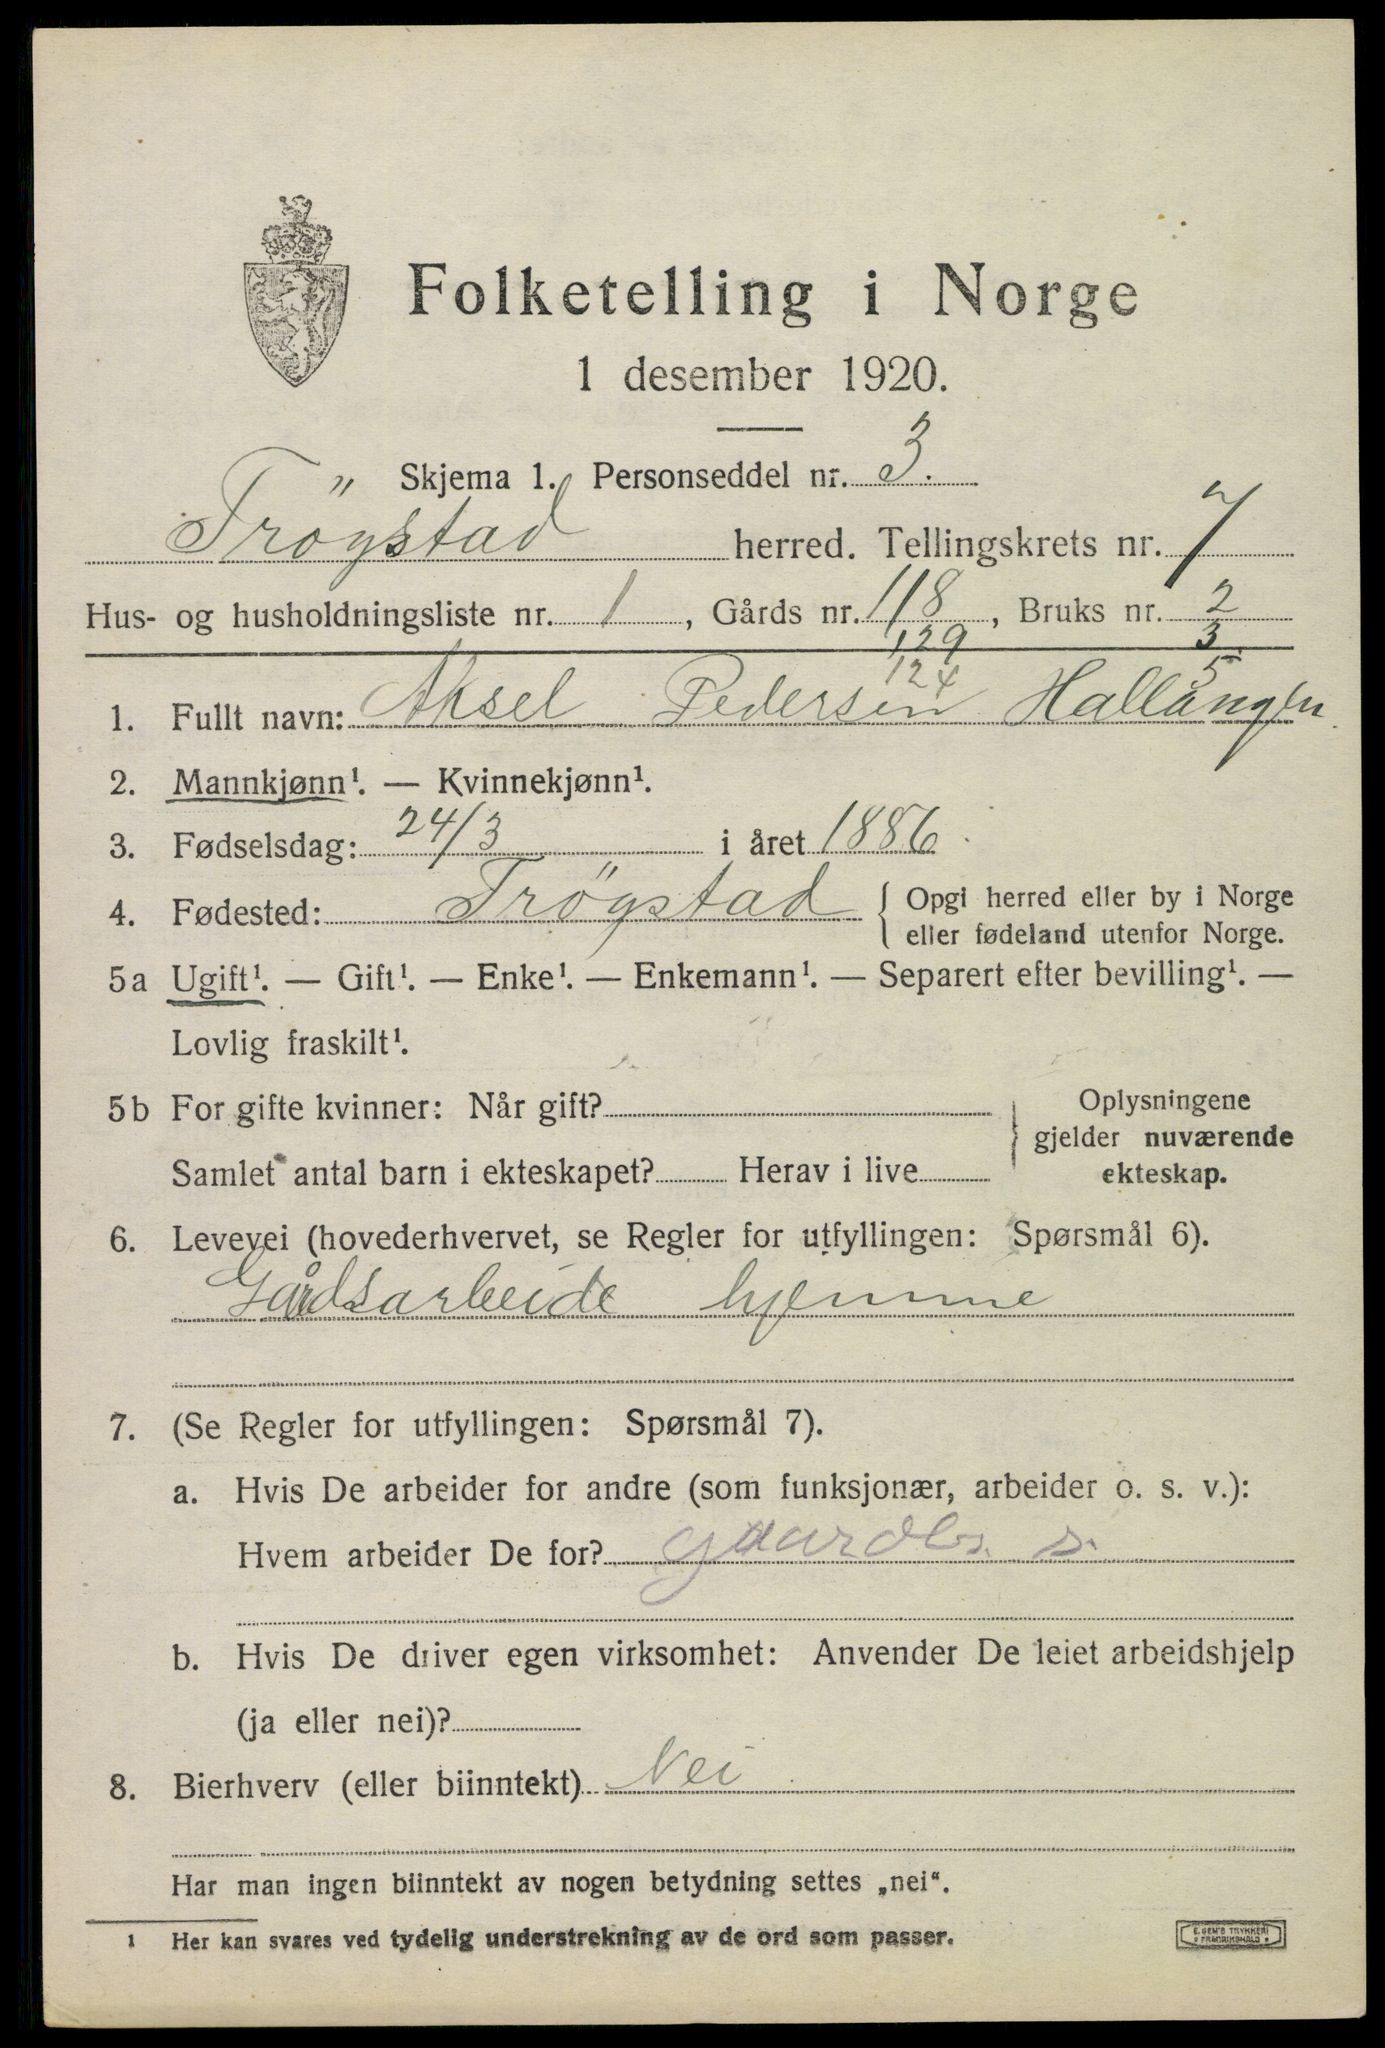 Folketelling i Norge
1 desember 1920.
Skjema 1. Personseddel nr. 3.
Trögstad herred. Tellingskrets nr. 7
Hus- og husholdningsliste nr. 1, Gårds nr. 118, Bruks nr. 2
129 3
124 5
1. Fullt navn: Aksel Pedersen Hallangen
2. Mannkjønn¹. — Kvinnekjønn¹.
3. Fødselsdag: 24/3 i året 1886
4. Fødested: Trögstad { Opgi herred eller by i Norge
eller fødeland utenfor Norge.
5a Ugift¹. — Gift¹. — Enke¹. — Enkemann¹. — Separert efter bevilling¹. —
Lovlig fraskilt¹.
5b For gifte kvinner: Når gift?
Samlet antal barn i ekteskapet? Herav i live
Oplysningene
gjelder nuværende
ekteskap.
6. Levevei (hovederhvervet, se Regler for utfyllingen: Spørsmål 6).
Gårdsarbeide hjemme
7. (Se Regler for utfyllingen: Spørsmål 7).
a. Hvis De arbeider for andre (som funksjonær, arbeider o. s. v.):
Hvem arbeider De for? gaardbr. s.
b. Hvis De driver egen virksomhet: Anvender De leiet arbeidshjelp
(ja eller nei)?
8. Bierhverv (eller biinntekt) Nei
Har man ingen biinntekt av nogen betydning settes „nei“.
¹ Her kan svares ved tydelig understrekning av de ord som passer.
E. SEM'S TRYKKERI
FREDRIKSHALD